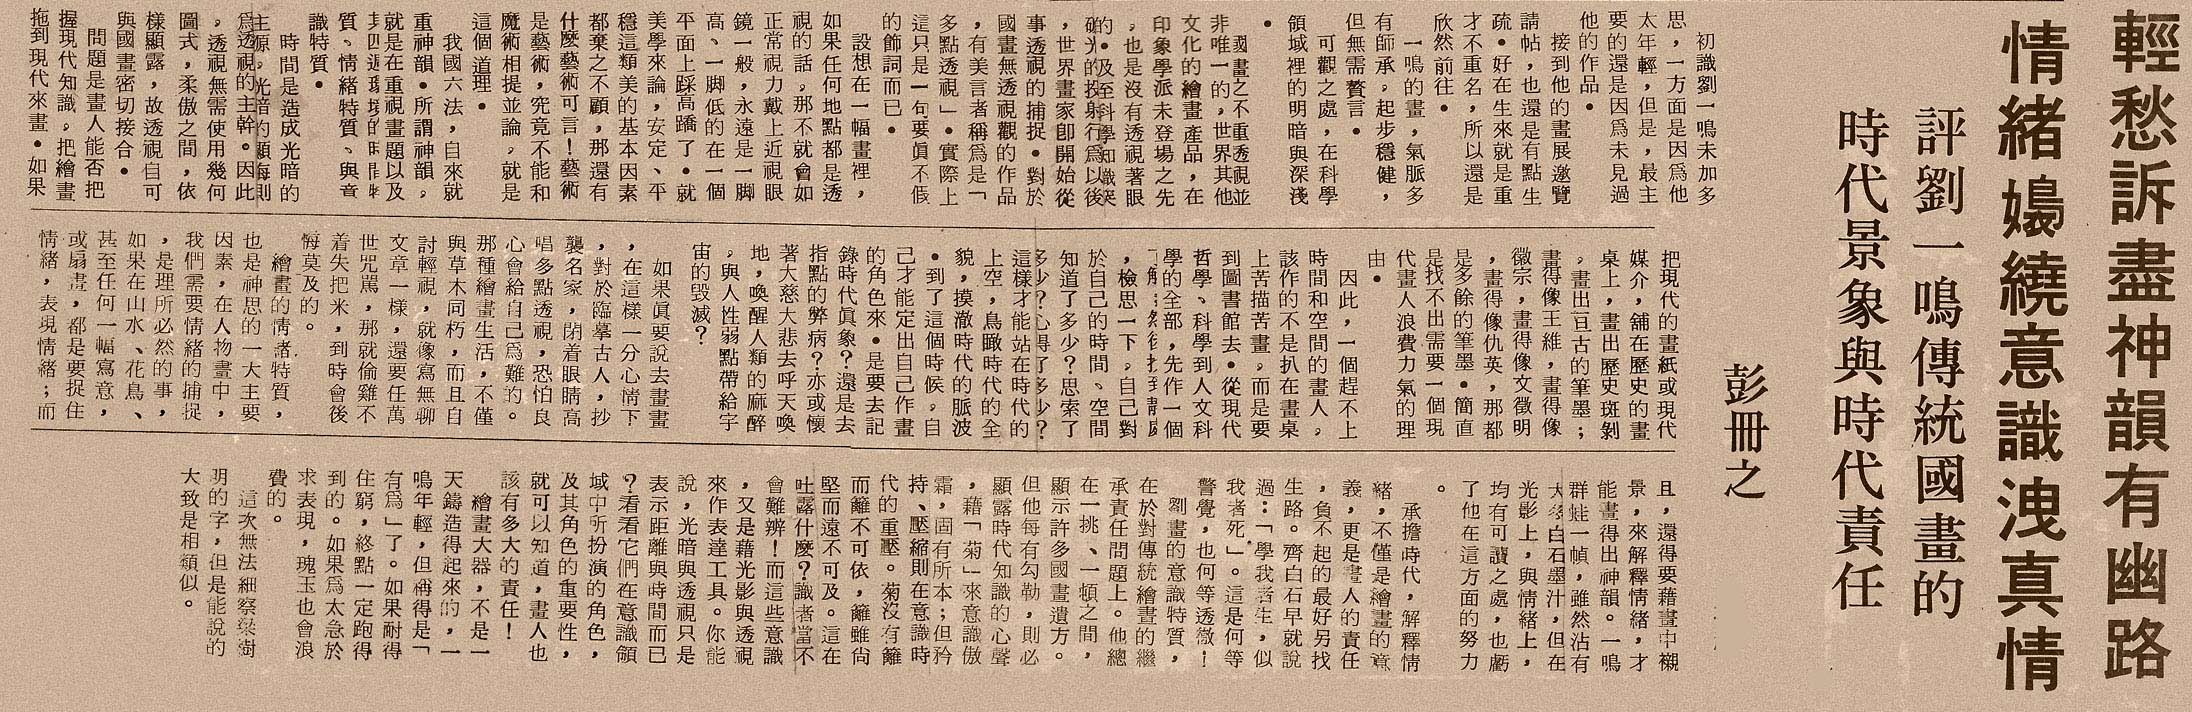 輕愁訴盡神韻有幽路
情緒嬝繞意識洩真情
評劉一鳴傳統國畫的
時代景象與時代責任
彭冊之
初識劉一鳴未加多
思，一方面是因爲他
太年輕，但是，最主
要的還是因爲未見過
他的作品。
接到他的畫展邀覽
請帖，也還是有點生
疏。好在生來就是重
才不重名，所以還是
欣然前往。
一鳴的畫，氣脈多
有師承，起步穩健，
但無需贅言。
可觀之處，在科學
領域裡的明暗與深淺
。
國畫之不重透視並
非唯一的，世界其他
文化的繪畫產品，在
印象學派未登場之先
，也是沒有透視著眼
的。及至科學知識突
破光的投射行爲以後
，世界畫家卽開始從
事透視的捕捉。對於
國畫無透視觀的作品
，有美言者稱爲是「
多點透視」。實際上
這只是一句要眞不假
的飾詞而已。
設想在一幅畫裡，
如果任何地點都是透
視的話，那不就會如
正常視力戴上近視眼
鏡一般，永遠是一脚
高、一脚低的在一個
平面上踩高蹻了。就
美學來論，安定、平
穩這類美的基本因素
都棄之不顧，那還有
什麽藝術可言！藝術
是藝術，究竟不能和
魔術相提並論，就是
這個道理。
我國六法，自來就
重神韻。所謂神韻，
就是在重視畫題以及
其四週環境的時間特
質、情緒特質、與意
識特質。
時間是造成光暗的
主源，光暗的顯晦則
爲透視的主幹。因此
，透視無需使用幾何
圖式，柔傲之間，依
樣顯露，故透視自可
與國畫密切接合。
問題是畫人能否把
握現代知識，把繪畫
拖到現代來畫。如果
把現代的畫紙或現代
媒介，舖在歷史的畫
桌上，畫出歷史斑剝
，畫出亘古的筆墨；
畫得像王維，畫得像
徽宗，畫得像文徵明
，畫得像仇英，那都
是多餘的筆墨。簡直
是找不出需要一個現
代畫人浪費力氣的理
由。
因此，一個趕不上
時間和空間的畫人，
該作的不是扒在畫桌
上苦描苦畫，而是要
到圖書館去。從現代
哲學、科學到人文科
學的全部，先作一個
了解；然後找到靜處
，檢思一下，自己對
於自己的時間、空間
知道了多少？思索了
多少？心得了多少？
這樣才能站在時代的
上空，鳥瞰時代的全
貌，摸澈時代的脈波
。到了這個時候，自
己才能定出自己作畫
的角色來。是要去記
錄時代眞象？還是去
指點的弊病？亦或懷
著大慈大悲去呼天喚
地，喚醒人類的麻醉
，與人性弱點帶給宇
宙的毀滅？
如果眞要說去畫畫
，在這樣一分心情下
，對於臨摹古人，抄
襲名家，閉着眼睛高
唱多點透視，恐怕良
心會給自己爲難的。
那種繪畫生活，不僅
與草木同朽，而且自
討輕視，就像寫無聊
文章一樣，還要任萬
世咒罵，那就偷雞不
着失把米，到時會後
悔莫及的。
繪畫的情諸特質，
也是神思的一大主要
因素，在人物畫中，
我們需要情緒的捕捉
，是理所必然的事，
如果在山水、花鳥、
甚至任何一幅寫意，
或扇畫，都是要捉住
情緒，表現情緒；而
且，還得要藉畫中襯
景，來解釋情緒，才
能畫得出神韻。一鳴
群蛙一幀，雖然沾有
太多白石墨汁，但在
光影上，與情緒上，
均有可讀之處，也虧
了他在這方面的努力
。
承擔時代，解釋情
緒，不僅是繪畫的意
義，更是畫人的責任
，負不起的最好另找
生路。齊白石早就說
過：「學我者生，似
我者死」。這是何等
警覺，也何等透澈！
劉畫的意識特質，
在於對傳統繪畫的繼
承責任問題上。他總
在一挑、一頓之間，
顯示許多國畫遺方。
但他每有勾勒，則必
顯露時代知識的心聲
，藉「菊」來意識傲
霜，固有所本；但矜
持、壓縮則在意識時
代的重壓。菊沒有籬
而籬不可依，籬雖尚
堅而遠不可及。這在
吐露什麽？識者當不
會難辨！而這些意識
，又是藉光影與透視
來作表達工具。你能
說，光暗與透視只是
表示距離與時間而已
？看看它們在意識領
域中所扮演的角色，
及其角色的重要性，
就可以知道，畫人也
該有多大的責任！
繪畫大器，不是一
天鑄造得起來的，一
鳴年輕，但稱得是「
有爲」了。如果耐得
住窮，終點一定跑得
到的。如果爲太急於
求表現，瑰玉也會浪
費的。
這次無法細察梁樹
明的字，但是能說的
大致是相類似。